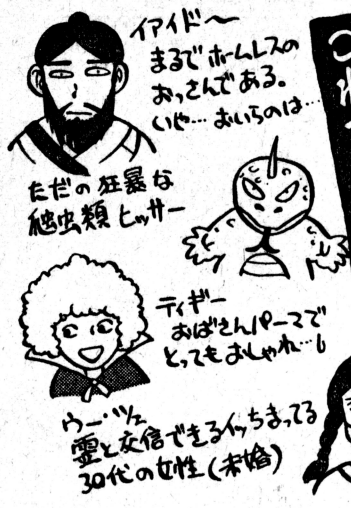 イアイド〜
まるでホームレスの
おっさんである。
いや… おいらのは…
ただの狂暴な
爬虫類 ヒッサー
ティギー
おばさんパーマで
とってもおしゃれ…
霊と交信できるイッちまってる
30代の女性(未婚)